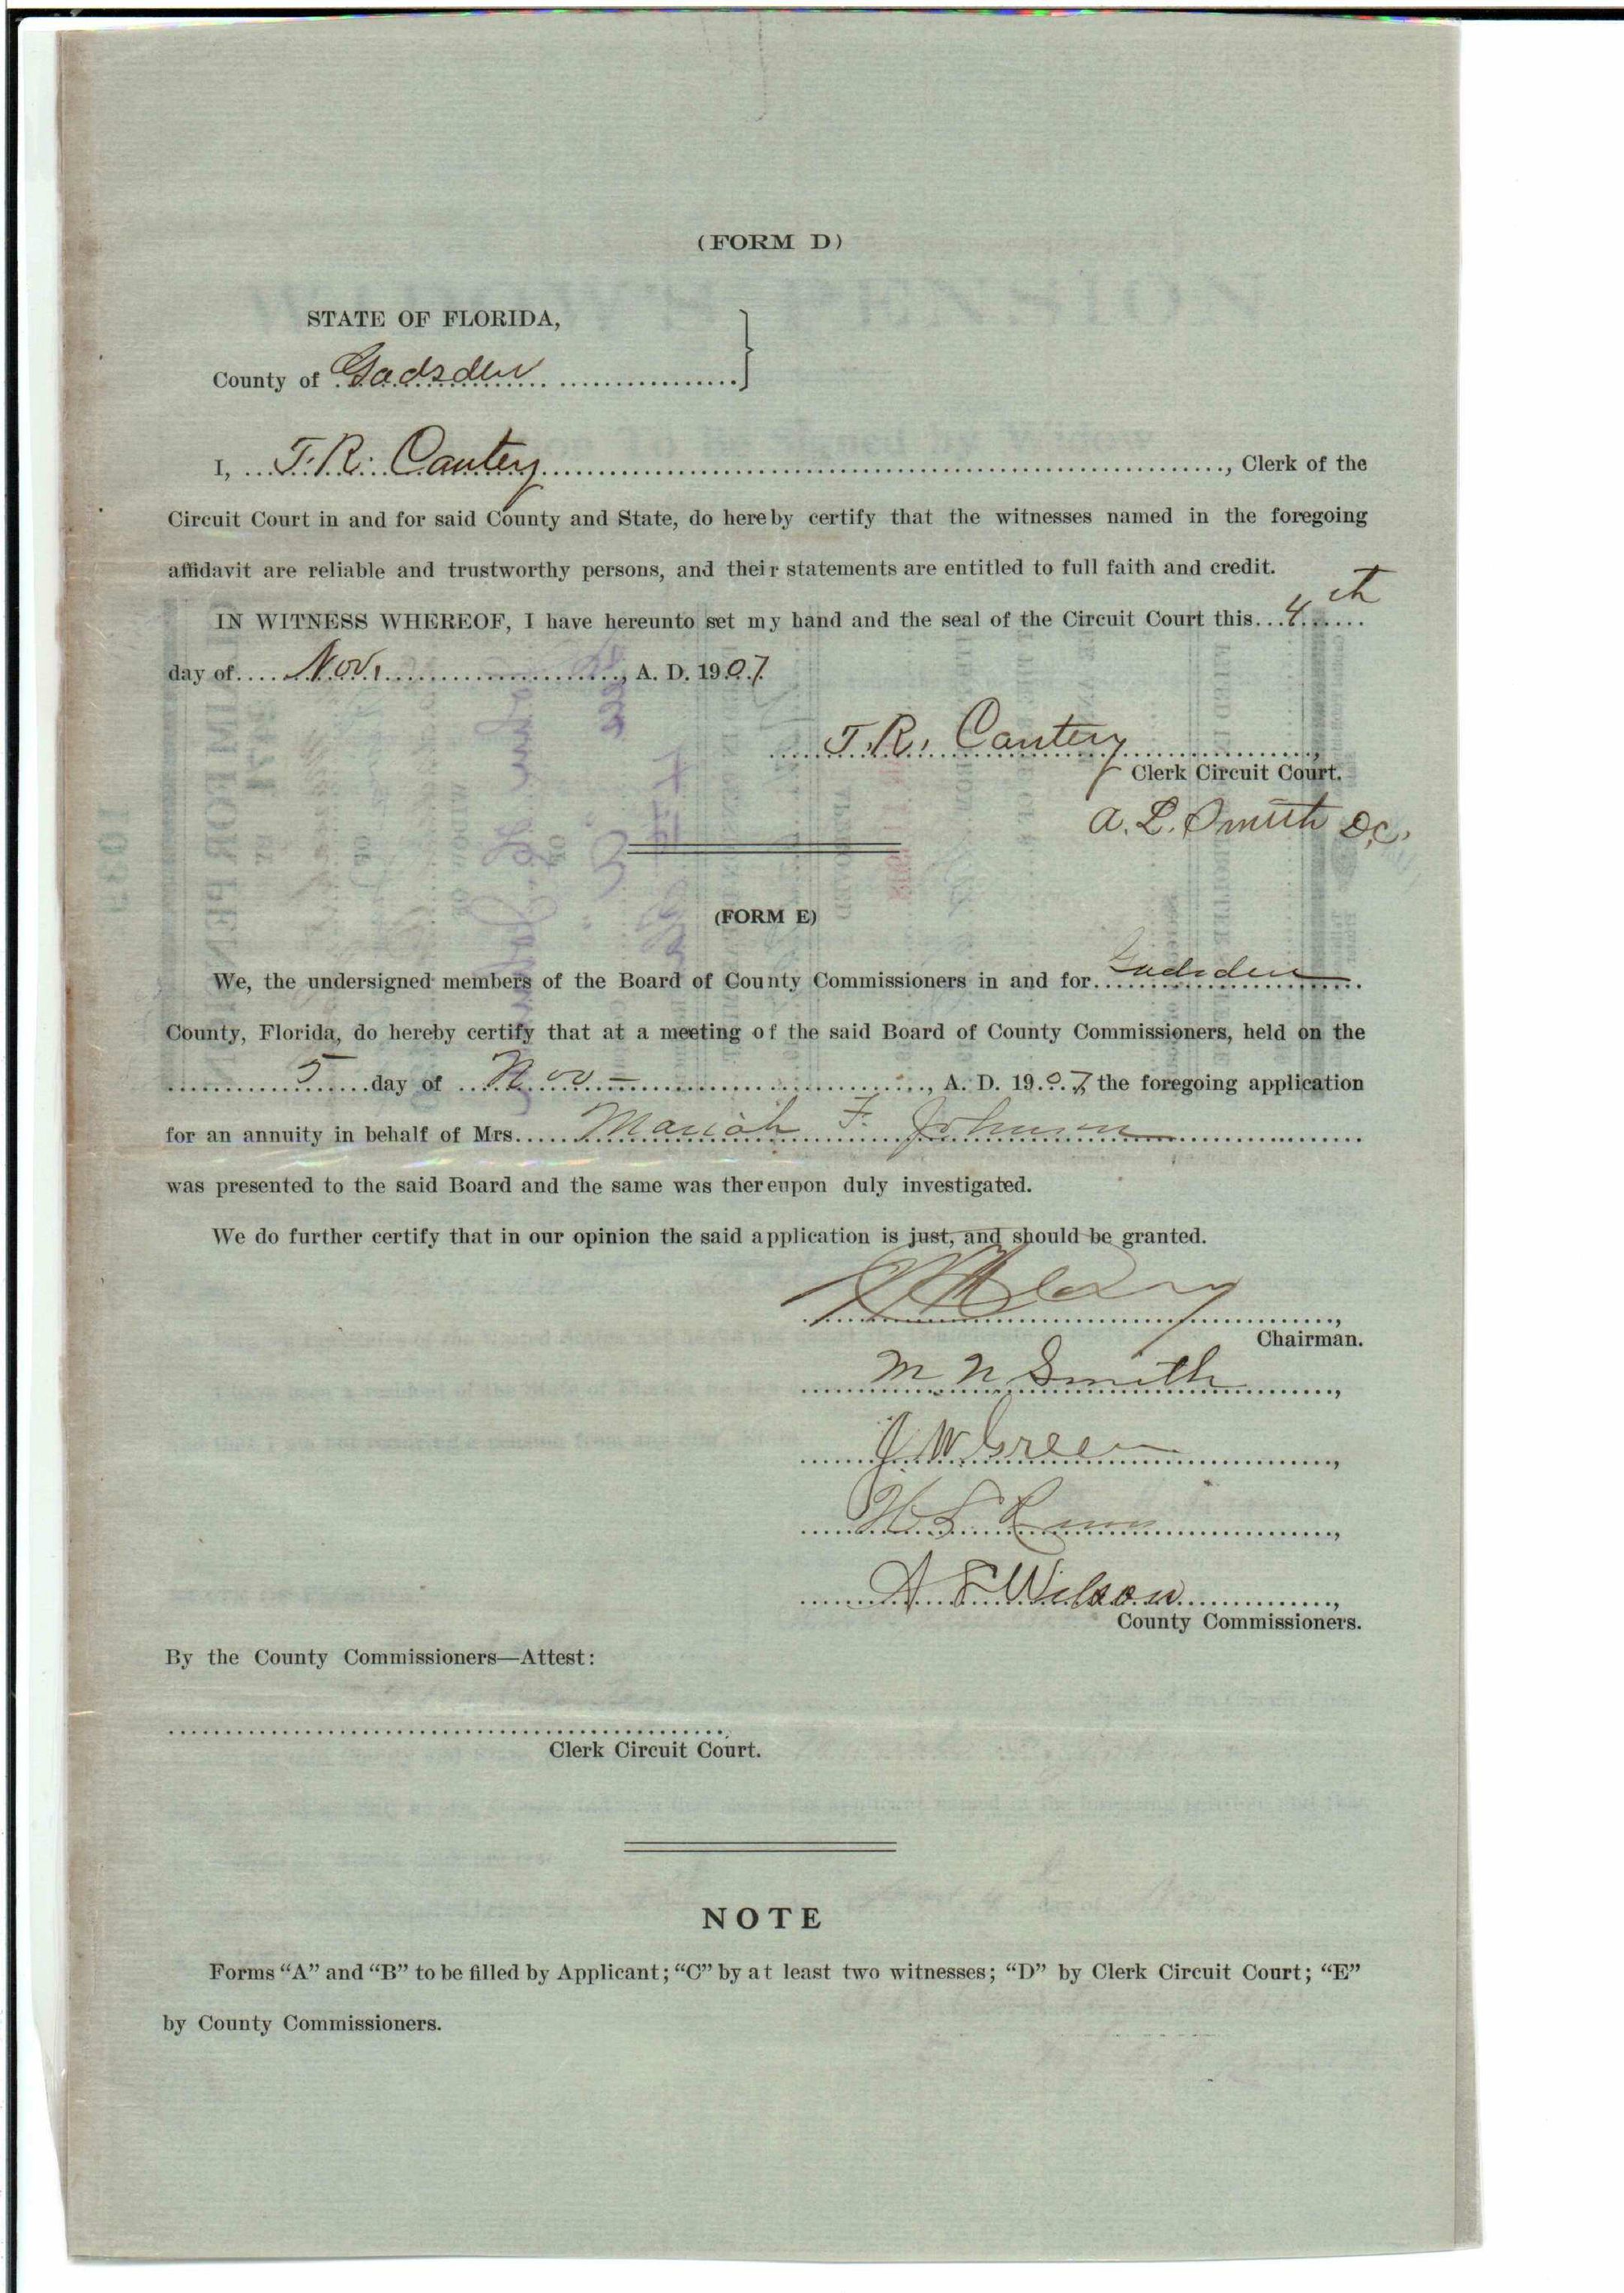 (FORM D)
STATE OF FLORIDA,
County of Gadsden
I, T. R. Cantey, Clerk of the
Circuit Court in and for said County and State, do hereby certify that the witnesses named in the foregoing
affidavit are reliable and trustworthy persons, and their statements are entitled to full faith and credit.
IN WITNESS WHEREOF, I have hereunto set my hand and the seal of the Circuit Court this 4th
day of Nov., A. D. 1907
T. R. Cantey
Clerk Circuit Court.
A. L. Smith D.C.
(FORM E)
We, the undersigned members of the Board of County Commissioners in and for Gadsden
County, Florida, do hereby certify that at a meeting of the said Board of County Commissioners, held on the
5 day of Nov -, A. D. 1907, the foregoing application
for an annuity in behalf of Mrs. Mariah F. Johnson
was presented to the said Board and the same was thereupon duly investigated.
We do further certify that in our opinion the said application is just, and should be granted.
Chairman.
M N Smith,
J W Green,
H. S.
A F Wilson,
County Commissioners.
By the County Commissioners—Attest:
Clerk Circuit Court.
NOTE
Forms “A” and “B” to be filled by Applicant; “C” by at least two witnesses; “D” by Clerk Circuit Court; “E”
by County Commissioners.